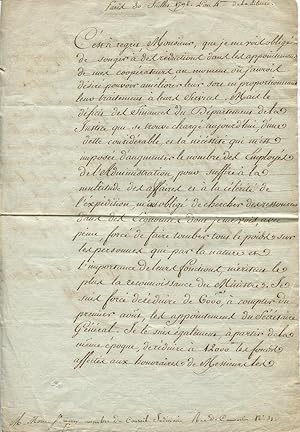 Paris 30 Juillet 1792. L'an 4e de la Liberté.
C'est à regret Monsieur, que je me vois obligé
de songer à des réductions dans les appointemens
de mes coopérateurs au moment où j'aurois
désiré pouvoir améliorer leur sort en proportionnant
leur traitement à leurs services. Mais le
déficit des Finances du Département de la
Justice qui se trouve chargé aujourd'hui d'une
dette considérable, et la nécessité qui m'est
imposée d'augmenter le nombre des Employés
de l'Administration, pour suffire à la
multitude des affaires et à la célérité de
l'expédition m'ont obligé de chercher des ressources
dans des Economies dont je me vois avec
peine forcé de faire tomber tout le poids sur
les personnes qui par la nature et
l'importance de leurs fonctions, méritent le
plus la reconnoissance du Ministre. Je
suis forcé de réduire de 6000, à compter du
premier août, les appointemens du Secrétaire
Général. Je le suis également à partir de la
même époque, de réduire à 12000 les fonds
affectés aux honoraires de Messieurs les
M. membre du Conseil Rue de N° 31.